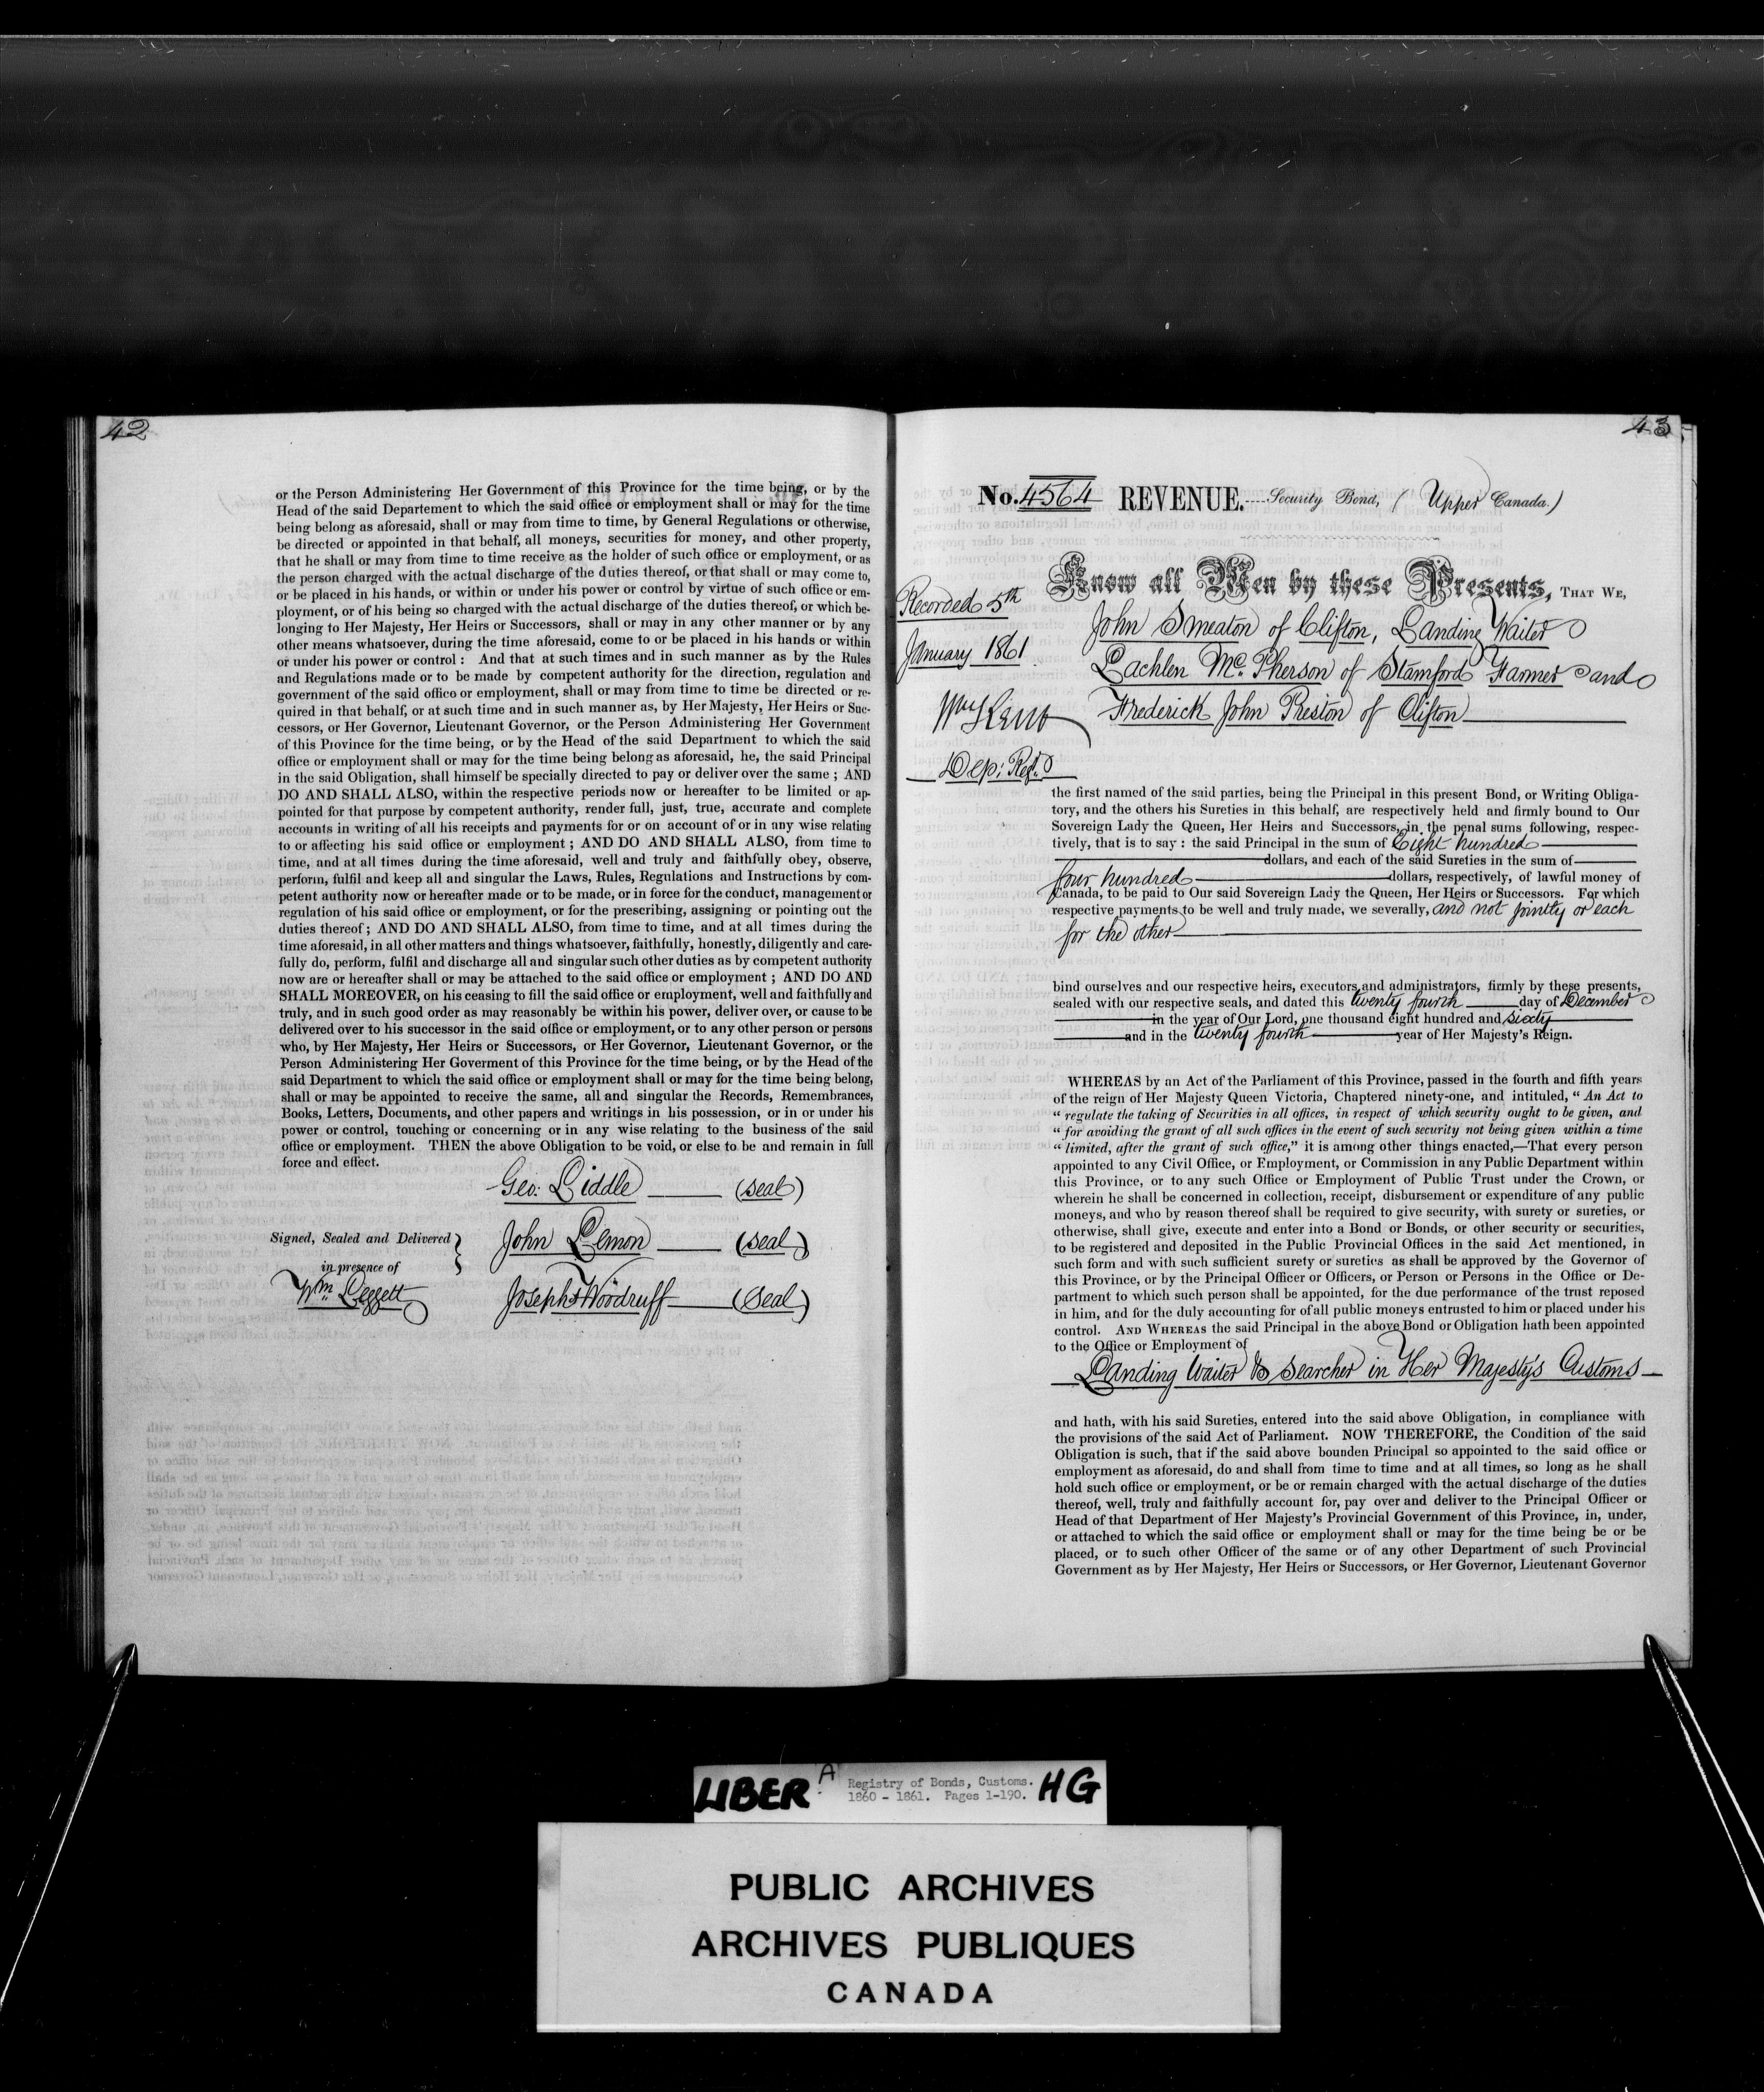 42
or the Person Administering Her Government of this Province for the time being, or by the
Head of the said Departement to which the said office or employment shall or may for the time
being belong as aforesaid, shall or may from time to time, by General Regulations or otherwise,
be directed or appointed in that behalf, all moneys, securities for money, and other property,
that he shall or may from time to time receive as the holder of such office or employment, or as
the person charged with the actual discharge of the duties thereof, or that shall or may come to,
or be placed in his hands, or within or under his power or control by virtue of such office or em-
ployment, or of his being so charged with the actual discharge of the duties thereof, or which be-
longing to Her Majesty, Her Heirs or Successors, shall or may in any other manner or by any
other means whatsoever, during the time aforesaid, come to or be placed in his hands or within
or under his power or control : And that at such times and in such manner as by the Rules
and Regulations made or to be made by competent authority for the direction, regulation and
government of the said office or employment, shall or may from time to time be directed or re-
quired in that behalf, or at such time and in such manner as, by Her Majesty, Her Heirs or Suc-
cessors, or Her Governor, Lieutenant Governor, or the Person Administering Her Government
of this Province for the time being, or by the Head of the said Department to which the said
office or employment shall or may for the time being belong as aforesaid, he, the said Principal
in the said Obligation, shall himself be specially directed to pay or deliver over the same ; AND
DO AND SHALL ALSO, within the respective periods now or hereafter to be limited or ap-
pointed for that purpose by competent authority, render full, just, true, accurate and complete
accounts in writing of all his receipts and payments for or on account of or in any wise relating
to or affecting his said office or employment ; AND DO AND SHALL ALSO, from time to
time, and at all times during the time aforesaid, well and truly and faithfully obey, observe,
perform, fulfil and keep all and singular the Laws, Rules, Regulations and Instructions by com-
petent authority now or hereafter made or to be made, or in force for the conduct, management or
regulation of his said office or employment, or for the prescribing, assigning or pointing out the
duties thereof ; AND DO AND SHALL ALSO, from time to time, and at all times during the
time aforesaid, in all other matters and things whatsoever, faithfully, honestly, diligently and care-
fully do, perform, fulfil and discharge all and singular such other duties as by competent authority
now are or hereafter shall or may be attached to the said office or employment ; AND DO AND
SHALL MOREOVER, on his ceasing to fill the said office or employment, well and faithfully and
truly, and in such good order as may reasonably be within his power, deliver over, or cause to be
delivered over to his successor in the said office or employment, or to any other person or persons
who, by Her Majesty, Her Heirs or Successors, or Her Governor, Lieutenant Governor, or the
Person Administering Her Goverment of this Province for the time being, or by the Head of the
said Department to which the said office or employment shall or may for the time being belong,
shall or may be appointed to receive the same, all and singular the Records, Remembrances,
Books, Letters, Documents, and other papers and writings in his possession, or in or under his
power or control, touching or concerning or in any wise relating to the business of the said
office or employment. THEN the above Obligation to be void, or else to be and remain in full
force and effect.
Geo: Liddle (Seal)
Signed, Sealed and Delivered
in presence of
John Lemon (Seal)
Wm Leggett
Joseph Woodruff (Seal)
43
No. 4564 REVENUE.----Security Bond, (Upper Canada.)
Know all Men by these Presents, THAT WE,
Recorded 5th
January 1861.
Wm Kent
Dep: Regr.
John Smeaton of Clifton, Landing Waiter
Lachlen Mc.Pherson of Stamford Farmer and
Frederick John Preston of Clifton
the first named of the said parties, being the Principal in this present Bond, or Writing Obliga-
tory, and the others his Sureties in this behalf, are respectively held and firmly bound to Our
Sovereign Lady the Queen, Her Heirs and Successors, in the penal sums following, respec-
tively, that is to say : the said Principal in the sum of Eight hundred
dollars, and each of the said Sureties in the sum of
four hundred dollars, respectively, of lawful money of
Canada, to be paid to Our said Sovereign Lady the Queen, Her Heirs or Successors. For which
respective payments to be well and truly made, we severally, and not jointly or each
for the other
bind ourselves and our respective heirs, executors and administrators, firmly by these presents,
sealed with our respective seals, and dated this twenty fourth day of December
in the year of Our Lord, one thousand eight hundred and sixty
and in the twenty fourth year of Her Majesty's Reign.
WHEREAS by an Act of the Parliament of this Province, passed in the fourth and fifth years
of the reign of Her Majesty Queen Victoria, Chaptered ninety-one, and intituled, " An Act to
" regulate the taking of Securities in all offices, in respect of which security ought to be given, and
" for avoiding the grant of all such offices in the event of such security not being given within a time
" limited, after the grant of such office," it is among other things enacted,—That every person
appointed to any Civil Office, or Employment, or Commission in any Public Department within
this Province, or to any such Office or Employment of Public Trust under the Crown, or
wherein he shall be concerned in collection, receipt, disbursement or expenditure of any public
moneys, and who by reason thereof shall be required to give security, with surety or sureties, or
otherwise, shall give, execute and enter into a Bond or Bonds, or other security or securities,
to be registered and deposited in the Public Provincial Offices in the said Act mentioned, in
such form and with such sufficient surety or sureties as shall be approved by the Governor of
this Province, or by the Principal Officer or Officers, or Person or Persons in the Office or De-
partment to which such person shall be appointed, for the due performance of the trust reposed
in him, and for the duly accounting for of all public moneys entrusted to him or placed under his
control. AND WHEREAS the said Principal in the above Bond or Obligation hath been appointed
to the Office or Employment of
Landing Waiter & Searcher in Her Majesty's Customs
and hath, with his said Sureties, entered into the said above Obligation, in compliance with
the provisions of the said Act of Parliament. NOW THEREFORE, the Condition of the said
Obligation is such, that if the said above bounden Principal so appointed to the said office or
employment as aforesaid, do and shall from time to time and at all times, so long as he shall
hold such office or employment, or be or remain charged with the actual discharge of the duties
thereof, well, truly and faithfully account for, pay over and deliver to the Principal Officer or
Head of that Department of Her Majesty's Provincial Government of this Province, in, under,
or attached to which the said office or employment shall or may for the time being be or be
placed, or to such other Officer of the same or of any other Department of such Provincial
Government as by Her Majesty, Her Heirs or Successors, or Her Governor, Lieutenant Governor
LIBER A Registry of Bonds, Customs. HG
1860 - 1861. Pages 1-190.
PUBLIC ARCHIVES
ARCHIVES PUBLIQUES
CANADA